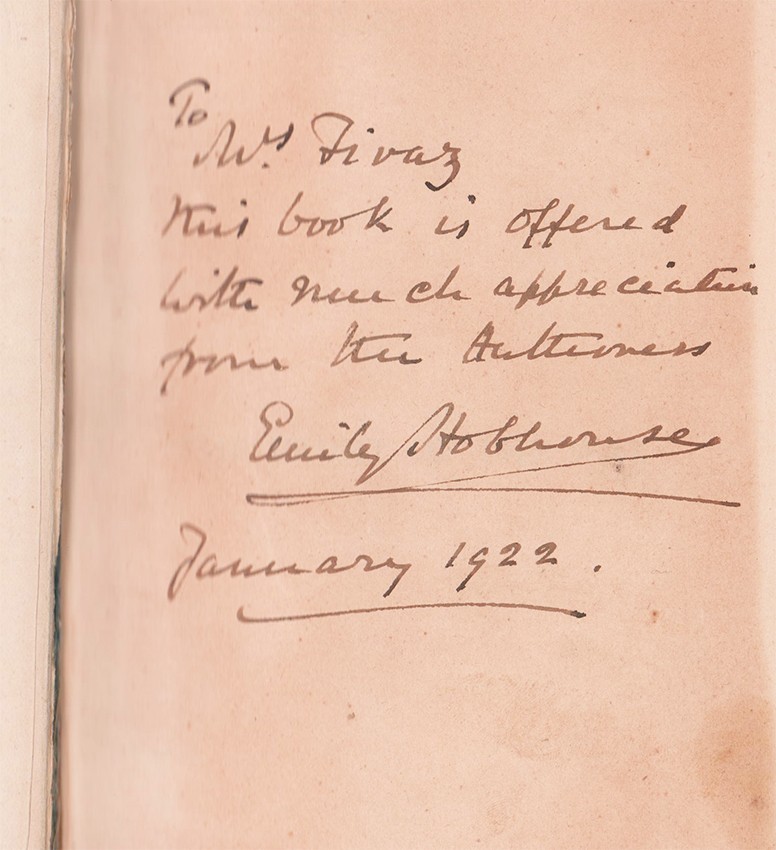 To
Mrs Fivaz
this book is offered
with much appreciation
from the Authoress
Emily Hobhouse
January 1922.